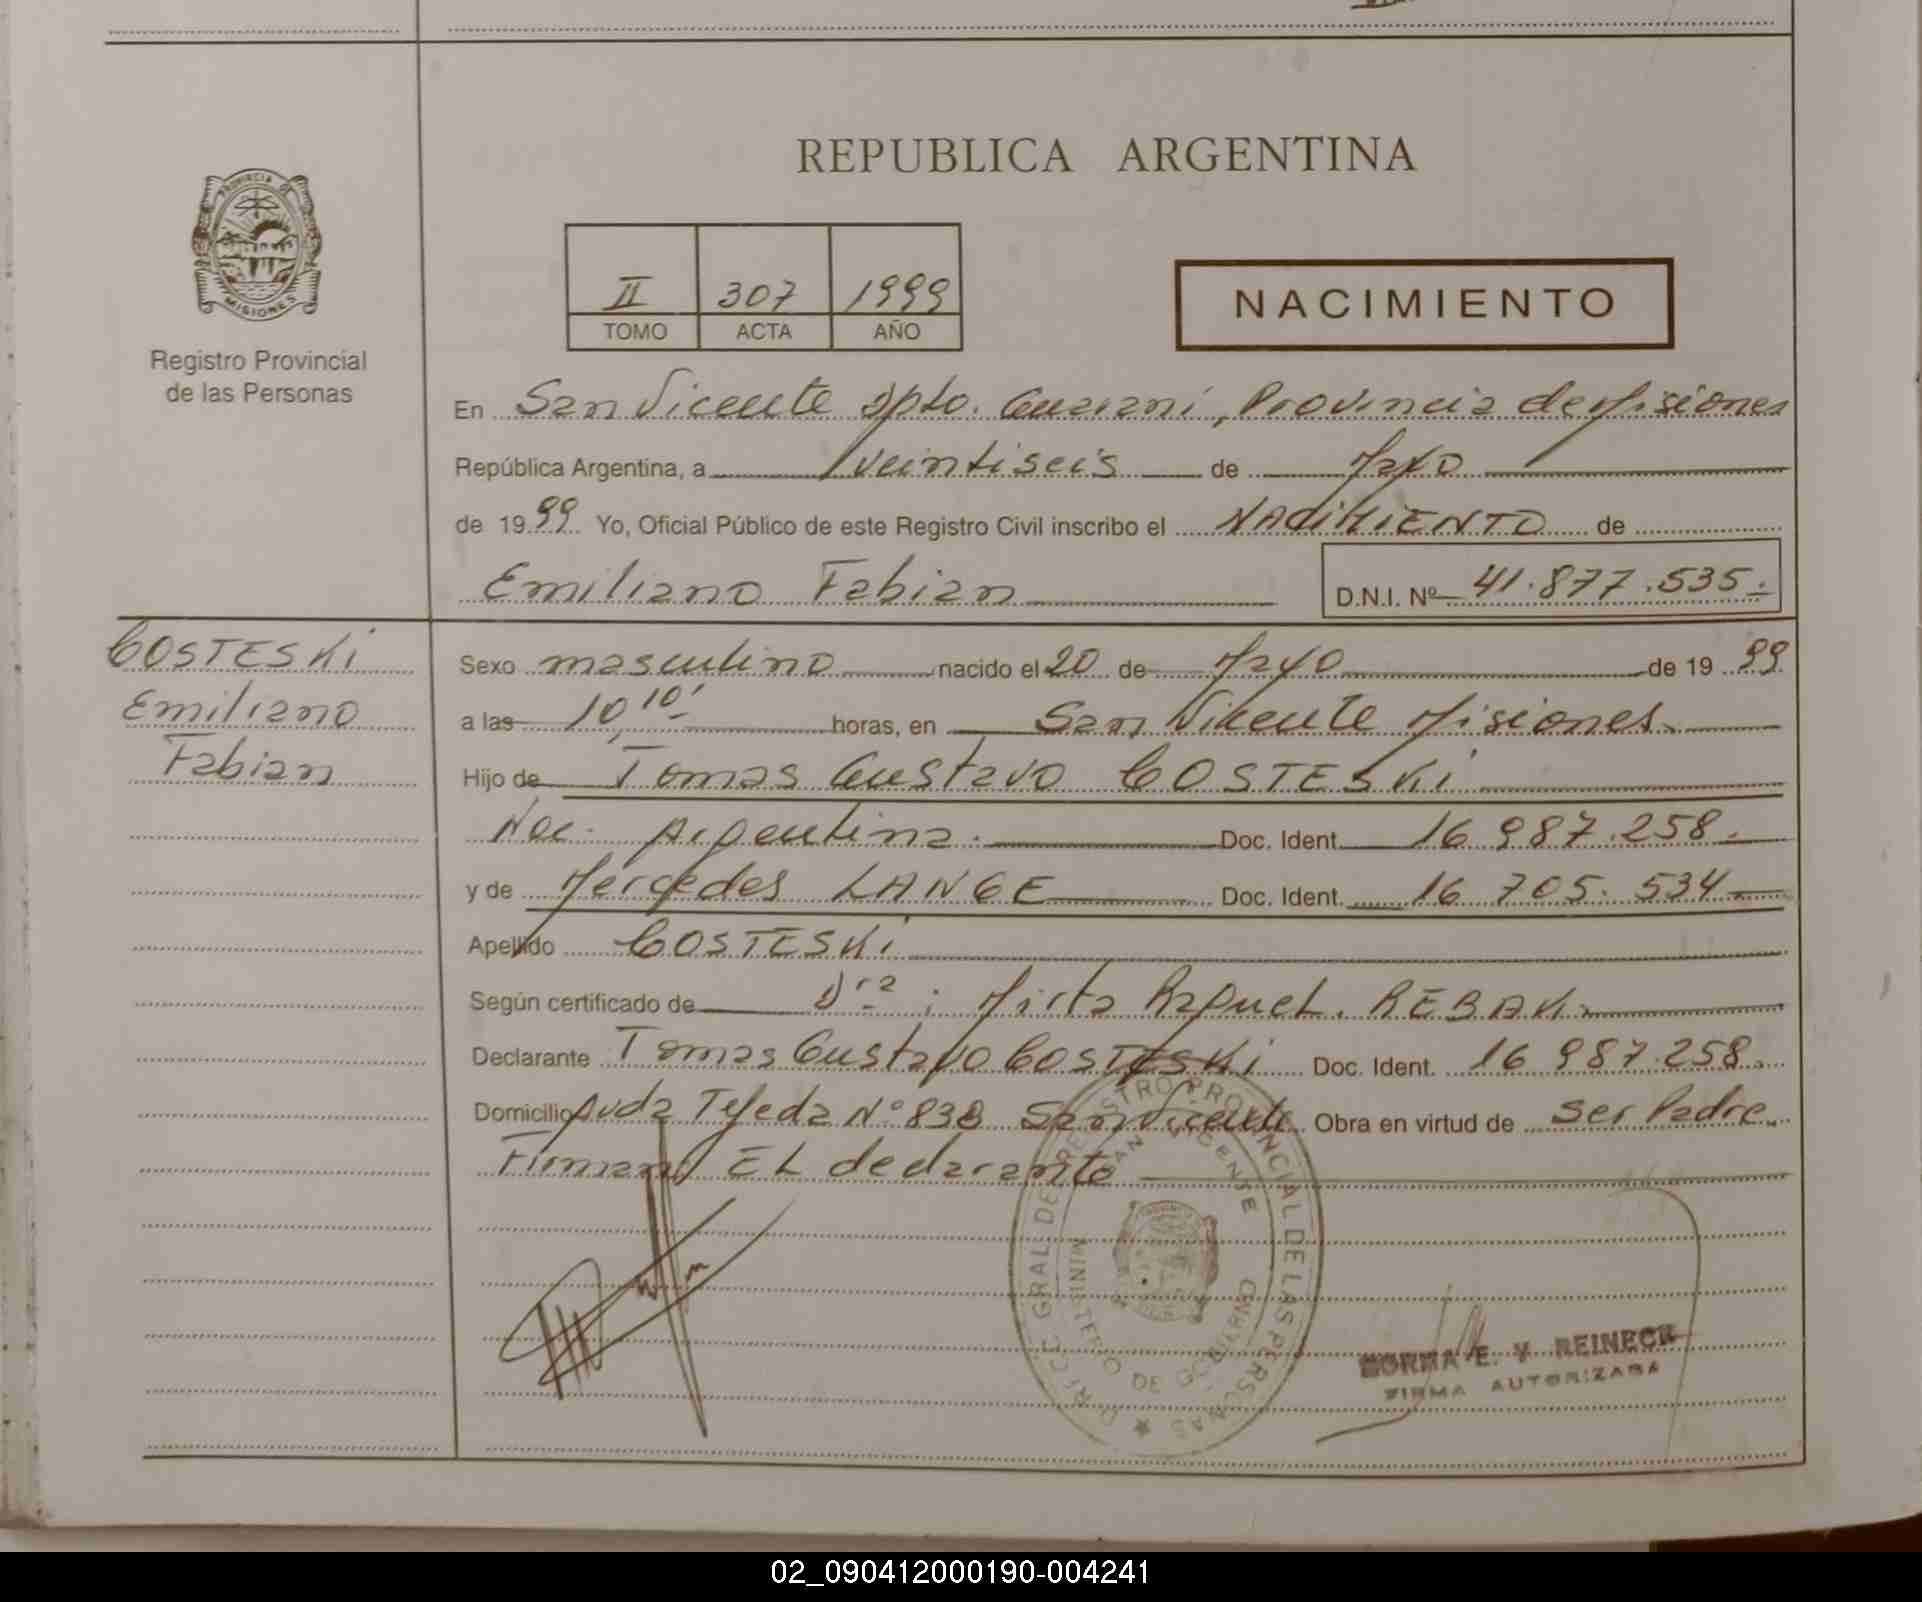 REPUBLICA ARGENTINA
PROVINCIA DE
MISIONES
Registro Provincial
de las Personas
II 307 1999
TOMO ACTA AÑO
NACIMIENTO
En San Vicente Dpto. Guarani, Provincia de Misiones
República Argentina, a veintiseis de Mayo
de 1999 Yo, Oficial Público de este Registro Civil inscribo el NACIMIENTO de
Emiliano Fabian D.N.I. Nº 41.877.535.-
COSTESKi
Emiliano
Fabian
Sexo masculino nacido el 20 de Mayo de 1999
a las 10,10'- horas, en San Vicente Misiones.
Hijo de Tomas Gustavo COSTESKi
Nac. Argentina. Doc. Ident. 16.987.258.-
y de Mercedes LANGE Doc. Ident. 16.705.534.-
Apellido COSTESKi
Según certificado de Dra: Mirta Raquel REBAK.
Declarante Tomas Gustavo COSTESKi Doc. Ident. 16.987.258.
Domicilio Avda Tejeda Nº 838 San Vicente Obra en virtud de Ser Padre.
Firman EL declarante
REGISTRO PROVINCIAL DE LAS PERSONAS
MINISTERIO DE GOBIERNO
NORMA E. V. REINECK
FIRMA AUTORIZADA
02_090412000190-004241